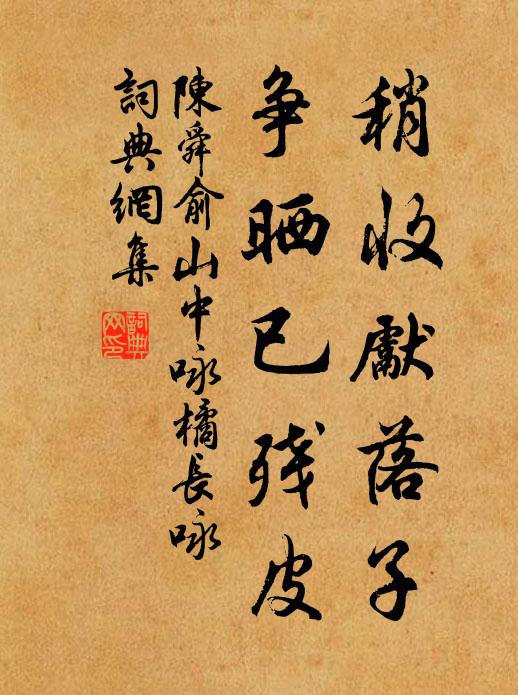 稍收獻落子
争晒已残皮
陳舜俞山中咏橘長咏
詞典網集
詞典网印